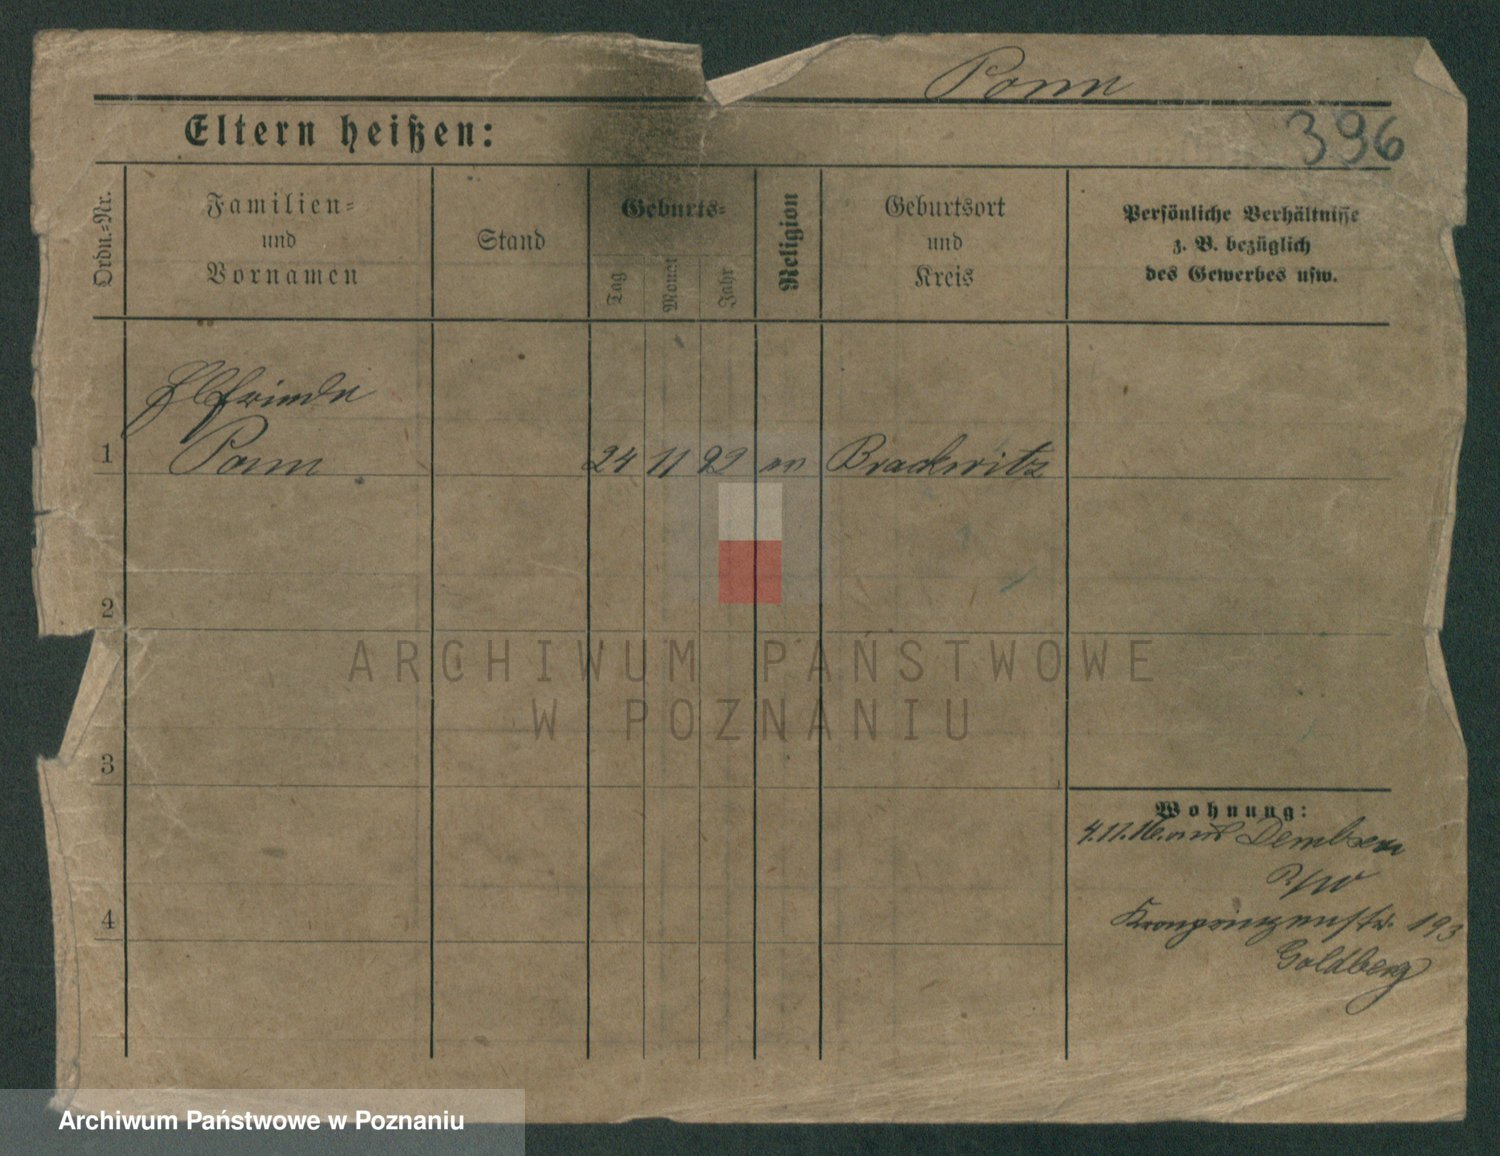 Ponn
396
Eltern heißen:
Ordn.-Nr.
Familien-
und
Vornamen
Stand
Geburts-
Tag
Monat
Jahr
Religion
Geburtsort
und
Kreis
Persönliche Verhältnisse
z. B. bezüglich
des Gewerbes usw.
Elfriede
1 Ponn 24 11 99 Brackwitz
2
ARCHIWUM PAŃSTWOWE
W POZNANIU
3
Wohnung:
4.11.16. aus Dembsen
Kronprinzenstr. 193
4
Goldberg
Archiwum Państwowe w Poznaniu